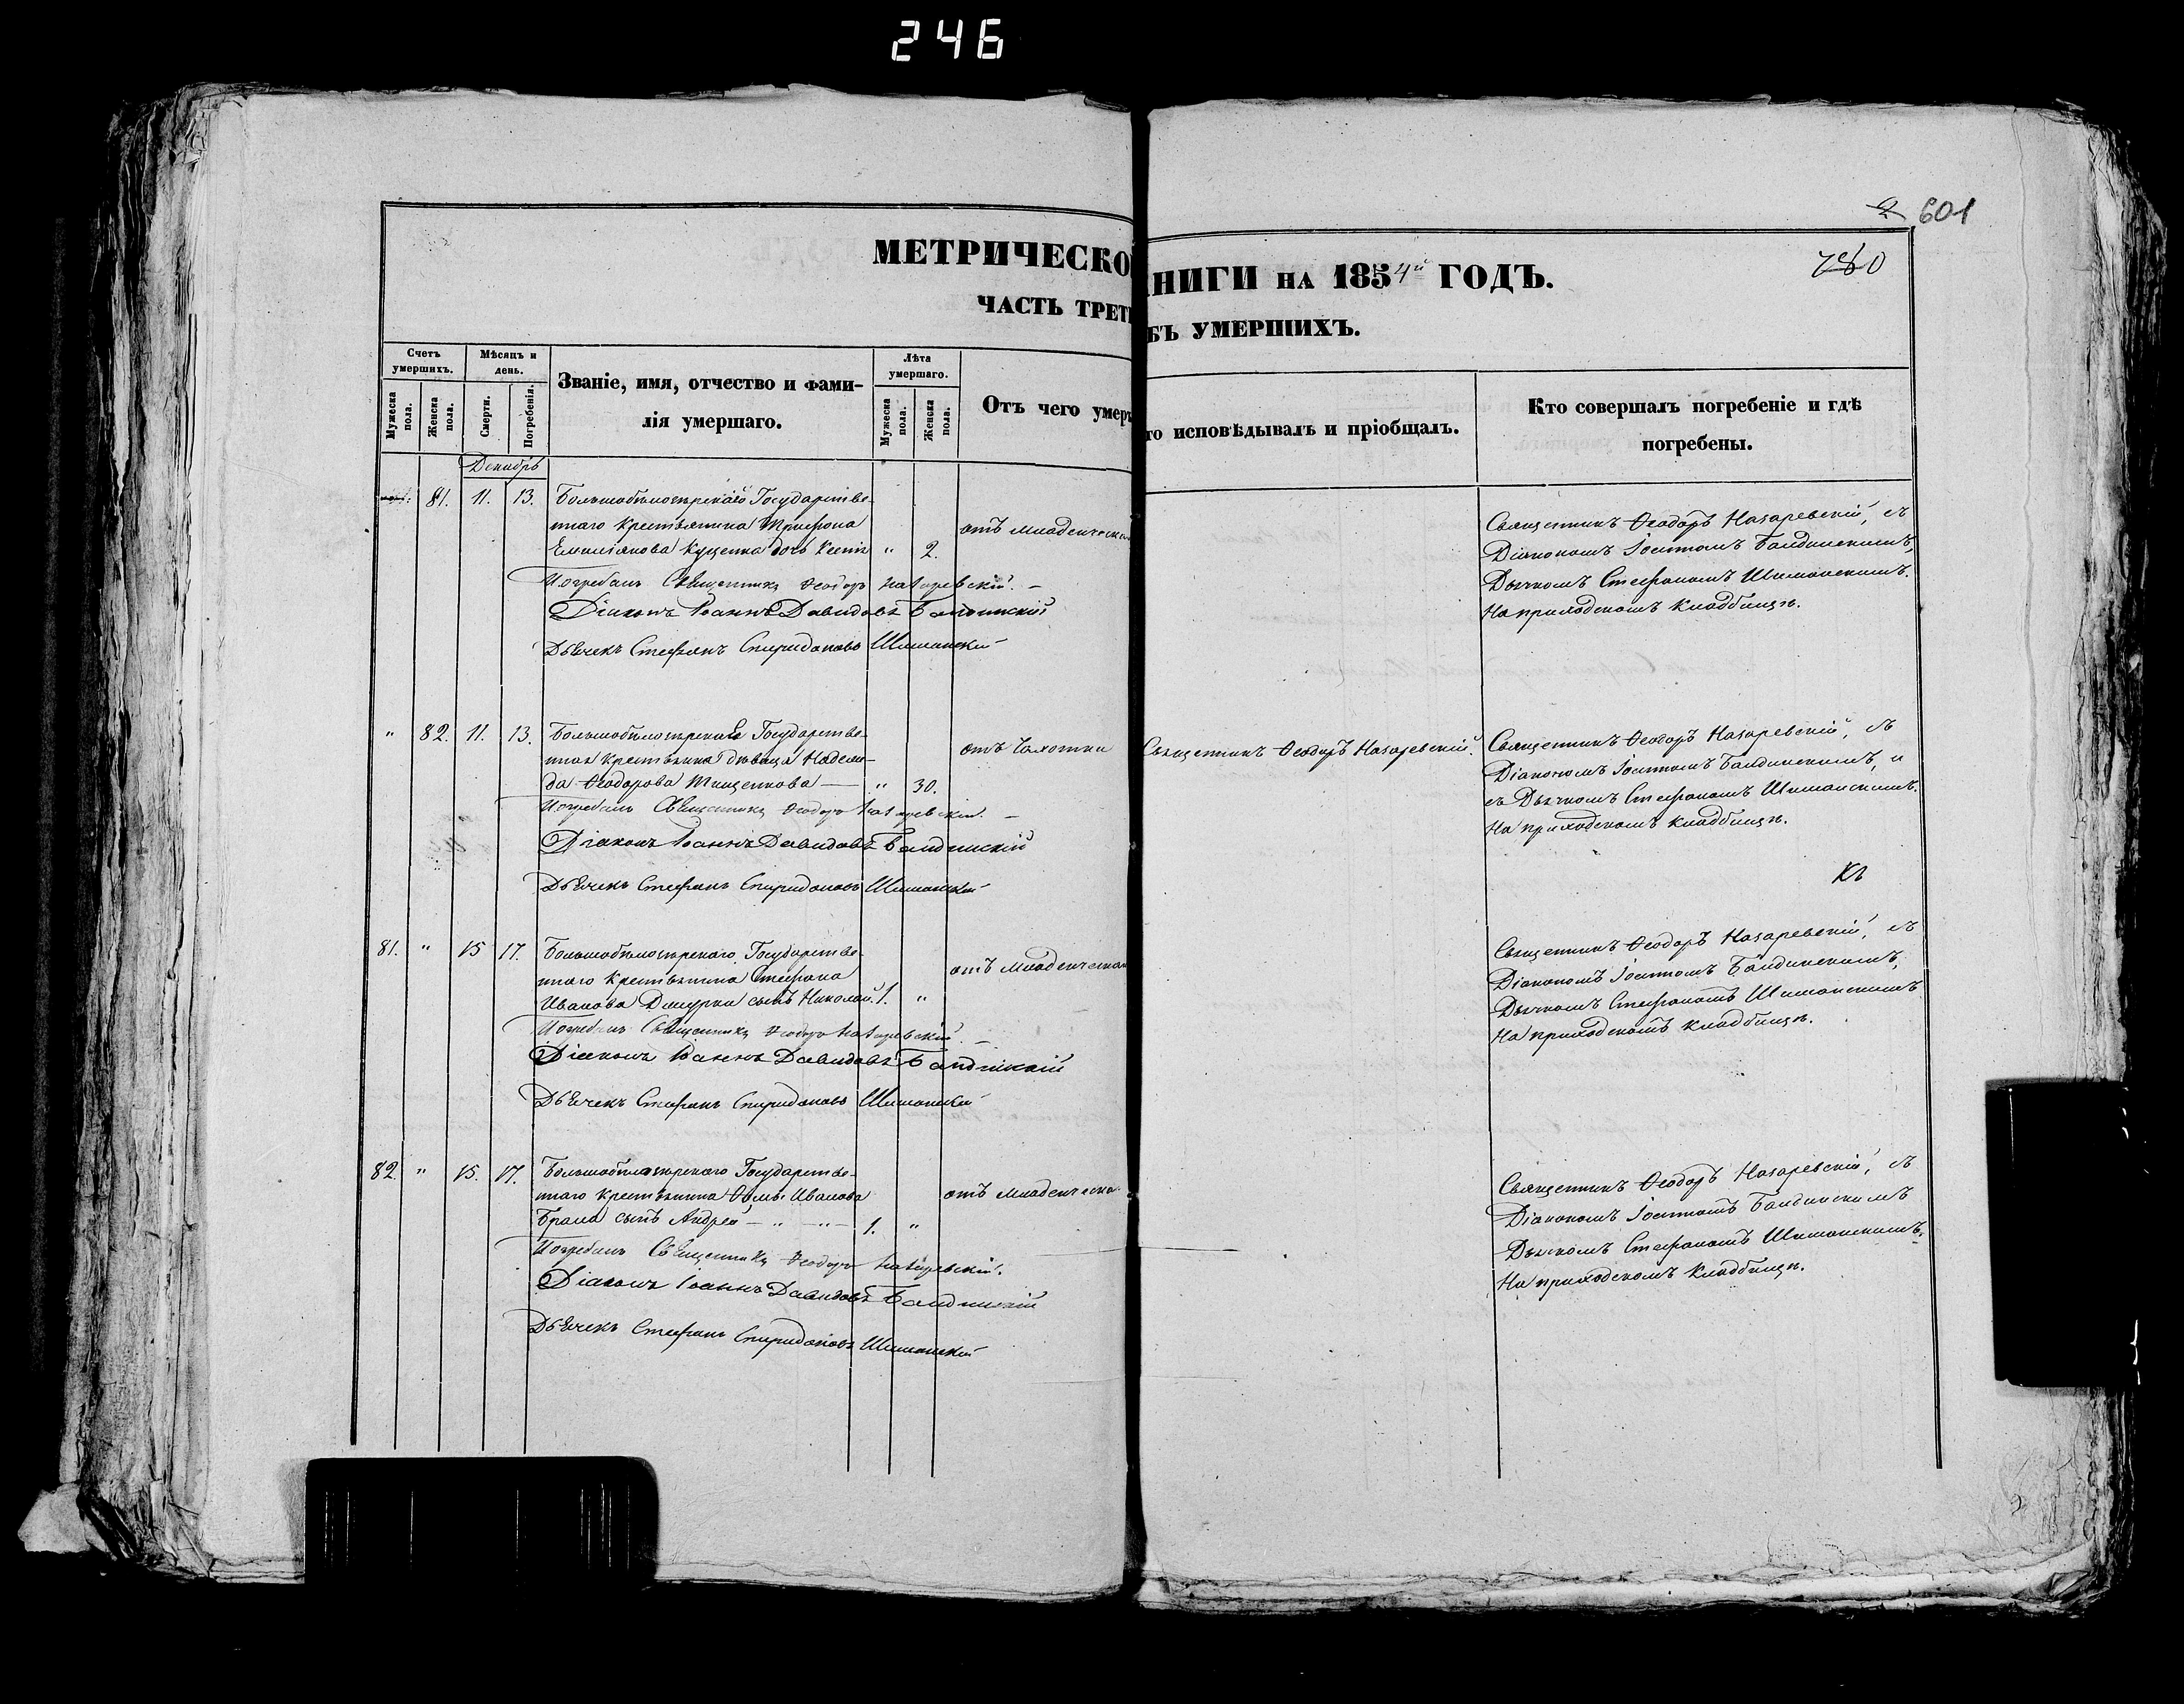 246
601
780
МЕТРИЧЕСКО
НИГИ НА 1854й ГОДЪ.
ЧАСТЬ ТРЕТ
БЪ УМЕРШИХЪ.
Счетъ умершихъ.
Мужеска пола.
Женска пола.
Мѣсяцъ и день.
Смерти.
Погребенія.
Званіе, имя, отчество и фами-
лія умершаго.
Лѣта умершаго.
Мужеска пола.
Женска пола.
Отъ чего умер
то исповѣдывалъ и пріобщалъ.
Кто совершалъ погребеніе и гдѣ
погребены.
Декабрь
81. 11. 13. Большобѣлозерскаго Государстве-
ннаго крестьянина Трифона
Емиліанова Куценка дочь " 2.
отъ младенческой
Погребалъ Священникъ Ѳеодоръ Назаревскій.
Діаконъ Іоаннъ Давидовъ Балдинскій
Дьячекъ Стефанъ Спиридоновъ Шиманскій
Священникъ Ѳеодоръ Назаревскій, съ
Діакономъ Іоанномъ Балдинскимъ,
Дьячкомъ Стефаномъ Шиманскимъ.
На приходскомъ кладбищѣ.
" 82. 11. 13. Большобѣлозерская Государстве-
нная крестьянка дѣвица Надеж-
да Ѳеодорова Тищенкова — " 30.
отъ Чахотки
Священникъ Ѳеодоръ Назаревскій.
Погребалъ Священникъ Ѳеодоръ Назаревскій. —
Діаконъ Іоаннъ Давидовъ Балдинскій
Дьячекъ Стефанъ Спиридоновъ Шиманскій
Священникъ Ѳеодоръ Назаревскій, съ
Діакономъ Іоанномъ Балдинскимъ, и
съ Дьячкомъ Стефаномъ Шиманскимъ.
На приходскомъ кладбищѣ.
81. " 15 17. Большобѣлозерскаго Государстве-
ннаго крестьянина Стефана
Иванова сынъ Николай. 1. "
отъ младенческой
Погребалъ Священникъ Ѳеодоръ Назаревскій. —
Діаконъ Іоаннъ Давидовъ Балдинскій
Дьячекъ Стефанъ Спиридоновъ Шиманскій
Священникъ Ѳеодоръ Назаревскій, съ
Діакономъ Іоанномъ Балдинскимъ,
Дьячкомъ Стефаномъ Шиманскимъ
На приходскомъ кладбищѣ.
82. " 15. 17. Большобѣлозерскаго Государстве-
ннаго крестьянина Ѳомы Иванова
сынъ Андрей — " — " — 1. "
отъ младенческо
Погребалъ Священникъ Ѳеодоръ Назаревскій.
Діаконъ Іоаннъ Давидовъ Балдинскій
Дьячекъ Стефанъ Спиридоновъ Шиманскій
Священникъ Ѳеодоръ Назаревскій, съ
Діакономъ Іоанномъ Балдинскимъ
Дьячкомъ Стефаномъ Шиманскимъ,
На приходскомъ кладбищѣ.